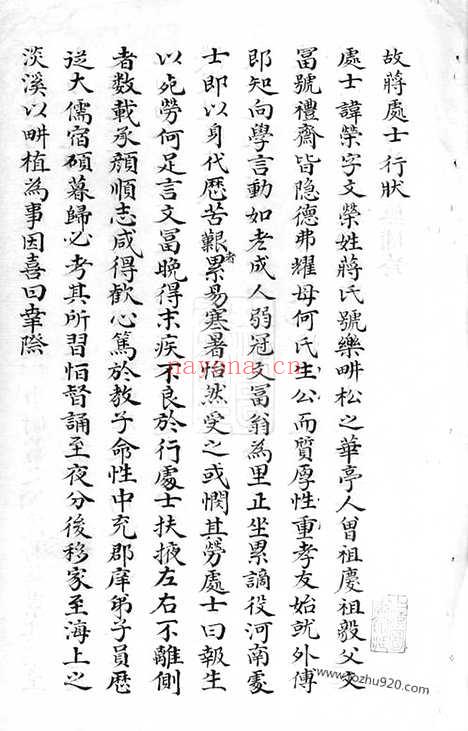 故蔣處士行狀
處士諱榮字文榮姓蔣氏號樂畊松之華亭人曾祖慶祖毅父文
冨號禮齋皆隐德弗耀母何氏生公而質厚性重孝友始就外傅
即知向學言動如老成人弱冠文冨翁為里正坐累謫役河南處
士即以身代歴苦艱累易寒暑怡然受之或憫其勞處士曰報生
者
以死勞何足言文冨晚得末疾不良於行處士扶掖左右不離側
者数載承顔順志咸得歡心篤於教子命性中充郡庠弟子員歴
従大儒宿碩暮歸必考其所習怕督誦至夜分後移家至海上之
淡溪以畊植為事因喜曰幸際
nayona.cn
www.tozhu920.com